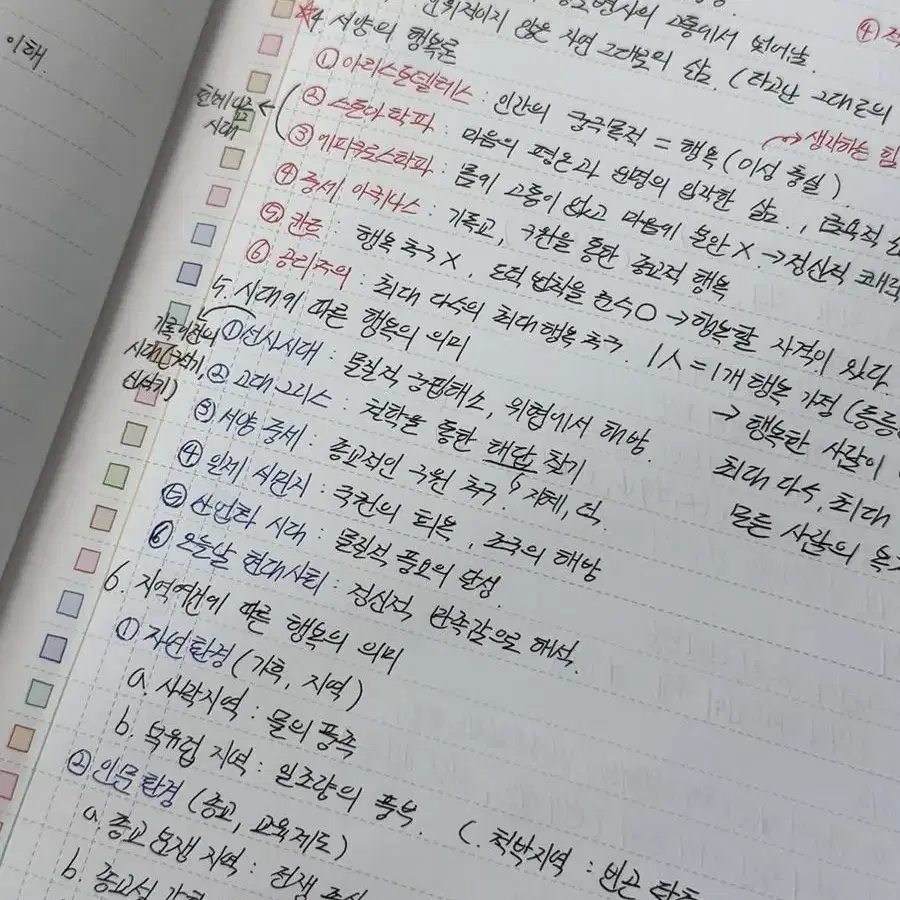 이해.
인위적이지 않은 자연 그대로의 삶. (타고난 그대로의
④
★4. 서양의 행복론
① 아리스토텔레스 : 인간의 궁극목적 = 행복 (이성 충실)
→ 생각하는 힘
헬레니즘 시대
② 스토아학파 : 마음의 평온과 원명의 입각한 삶.,
③ 에피쿠로스학파 : 몸에 고통이 없고 마음에 불안 X → 정신적 쾌락
④ 중세 아퀴나스 : 기독교, 구원을 통한 종교적 행복
⑤ 칸트 : 행복 추구 X. 도덕 법칙을 준수 ○ → 행복할 자격이 있다.
⑥ 공리주의 : 최대 다수의 최대 행복 추구. 1人 = 1개 행복 가정
→ 행복한 사람이
최대 다수, 최대
모든 사람의
5. 시대에 따른 행복의 의미
기록 이전의 시대 (구석기, 신석기)
① 선사시대 : 물질적 궁핍해소, 위협에서 해방.
② 고대 그리스 : 철학을 통한 해답 찾기
지혜, 덕
③ 서양 중세 : 종교적인 구원 추구.
④ 일제 식민지 : 국권의 회복, 조국의 해방
⑤ 산업화 시대 : 물질적 풍요의 달성.
⑥ 오늘날 현대사회 : 정신적 만족감으로 해석.
6. 지역여건에 따른 행복의 의미
① 자연환경 (기후, 지역)
a. 사막지역 : 물의 풍족
b. 북유럽 지역 : 일조량의 풍부.
(척박지역 : 빈곤 탈출
② 인문환경 (종교, 교육제도)
a. 종교 분쟁 지역 : 전쟁 종식
b. 종교성